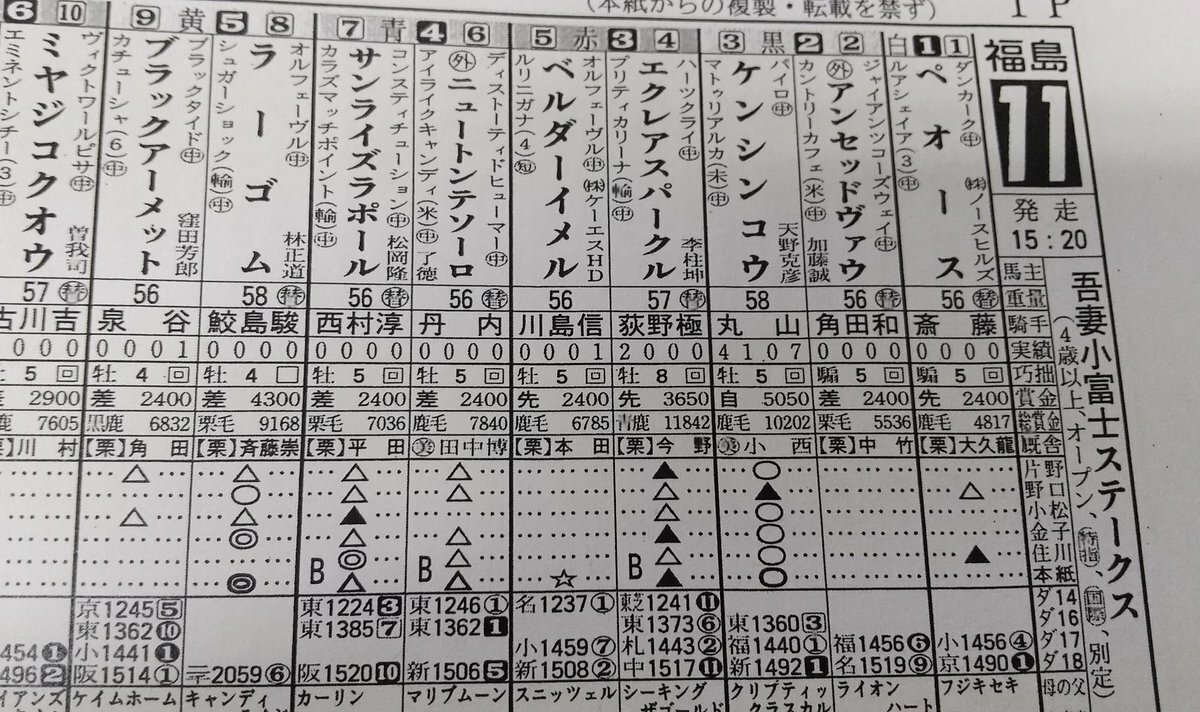 (本紙からの複製・転載を禁ず)
1P
福島
11
発走
15:20
吾妻小富士ステークス
(4歳以上、オープン、(特指)、(国際)、別定)
馬主
重量
騎手
実績
巧拙
賞金
総賞金
厩舎
片野
野口
小松
金子
住川
本紙
ダ14
ダ16
ダ17
ダ18
母の父
白 1 1
ダンカーク㊥
ペオース
ルアシェイア(3)㊥
㈱ノースヒルズ
56 替
斎藤
0 0 0 0
騸 5 回
先 2400
鹿毛 4817
【栗】大久龍
△
▲
小1456④
京1490❶
フジキセキ
2 2
ジャイアンツコーズウェイ㊥
外アンセッドヴァウ
カントリーカフェ(米)㊥
加藤誠
56 替
角田和
0 0 0 0
騸 5 回
差 2400
栗毛 5536
【栗】中竹
福1456❻
名1519⑨
ライオンハート
3 黒
パイロ㊥
ケンシンコウ
マトゥリアルカ(未)㊥
天野克彦
58
丸山
4 1 0 7
牡 5 回
自 5050
栗毛 10202
美 小西
○
▲
○
○
○
○
東1360③
福1440①
新1492❶
クリプティックラスカル
3 4
ハーツクライ㊥
エクレアスパークル
プリティカリーナ(輸)㊥
李柱坤
57 替
荻野極
2 0 0 0
牡 8 回
先 3650
青鹿 11842
【栗】今野
▲
△
▲
△
B ▲
東芝1241⓫
東1373⑥
札1443②
中1517⓫
シーキングザゴールド
5 赤
オルフェーヴル㊥
ベルダーイメル
ルリニガナ(4)短
㈱ケーエスHD
56
川島信
0 0 0 1
牡 5 回
先 2400
鹿毛 6785
【栗】本田
☆
名1237①
小1459⑦
新1508②
スニッツェル
4 6
ディストーティドヒューマー㊥
外ニュートンテソーロ
アイライクキャンディ(米)㊥
了德
56 替
丹内
0 0 0 0
牡 5 回
差 2400
鹿毛 7840
美 田中博
△
△
△
△
B △
東1246①
東1362❶
新1506❺
マリブムーン
7 青
コンスティチューション㊥
サンライズラポール
カラズマッチポイント(輸)㊥
松岡隆
56 替
西村淳
0 0 0 0
牡 5 回
差 2400
栗毛 7036
【栗】平田
△
△
▲
◎
B △
東1224❸
東1385⑦
阪1520❿
カーリン
5 8
オルフェーヴル㊥
ラーゴム
シュガーショック(輸)㊥
林正道
58 替
鮫島駿
0 0 0 0
牡 4
差 4300
栗毛 9168
【栗】斉藤崇
△
○
△
◎
◎
2059⑥
キャンディ
9 黄
ブラックタイド㊥
ブラックアーメット
カチューシャ(6)㊥
窪田芳郎
56
泉谷
0 0 0 1
牡 4 回
差 2400
黒鹿 6832
【栗】角田
△
△
京1245⑤
東1362❿
小1441❶
阪1514①
ケイムホーム
6 10
ヴィクトワールピサ㊥
ミヤジコクオウ
エミネントシチー(3)㊥
曽我司
57 替
古川吉
0 0 0
牡 5 回
2900
鹿毛 7605
川村
454❶
496❷
イアンズ